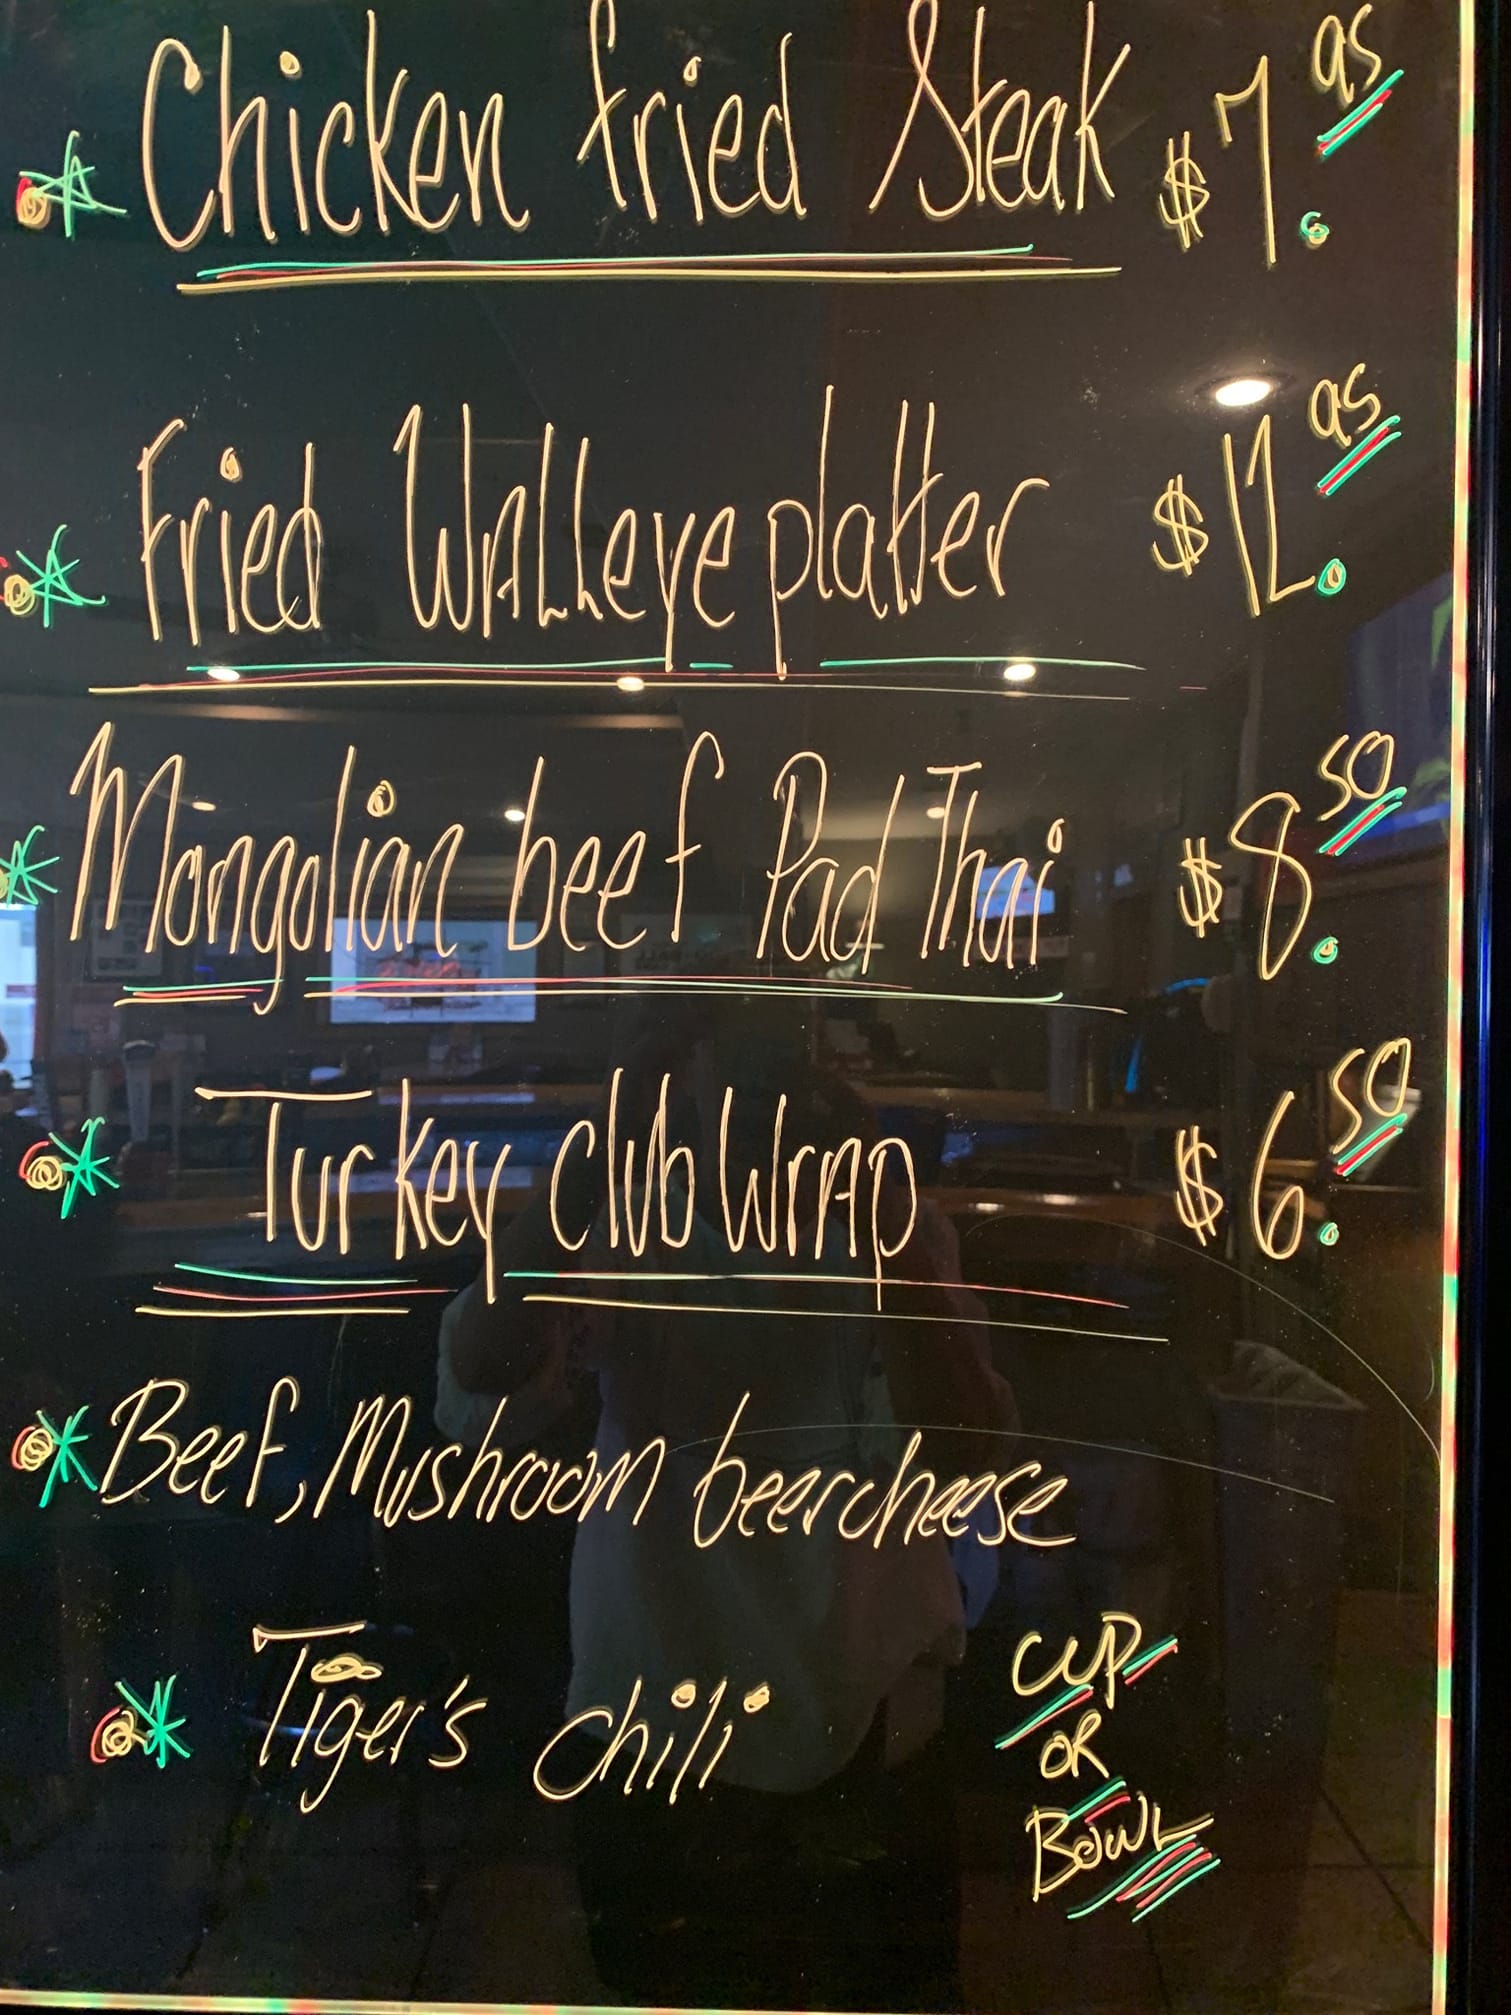 Chicken fried Steak $7.95
Fried Walleye platter $12.95
Mongolian beef Pad Thai $8.50
Turkey Club Wrap $6.50
Beef, Mushroom beercheese
Tiger's chili
CUP
OR
BOWL